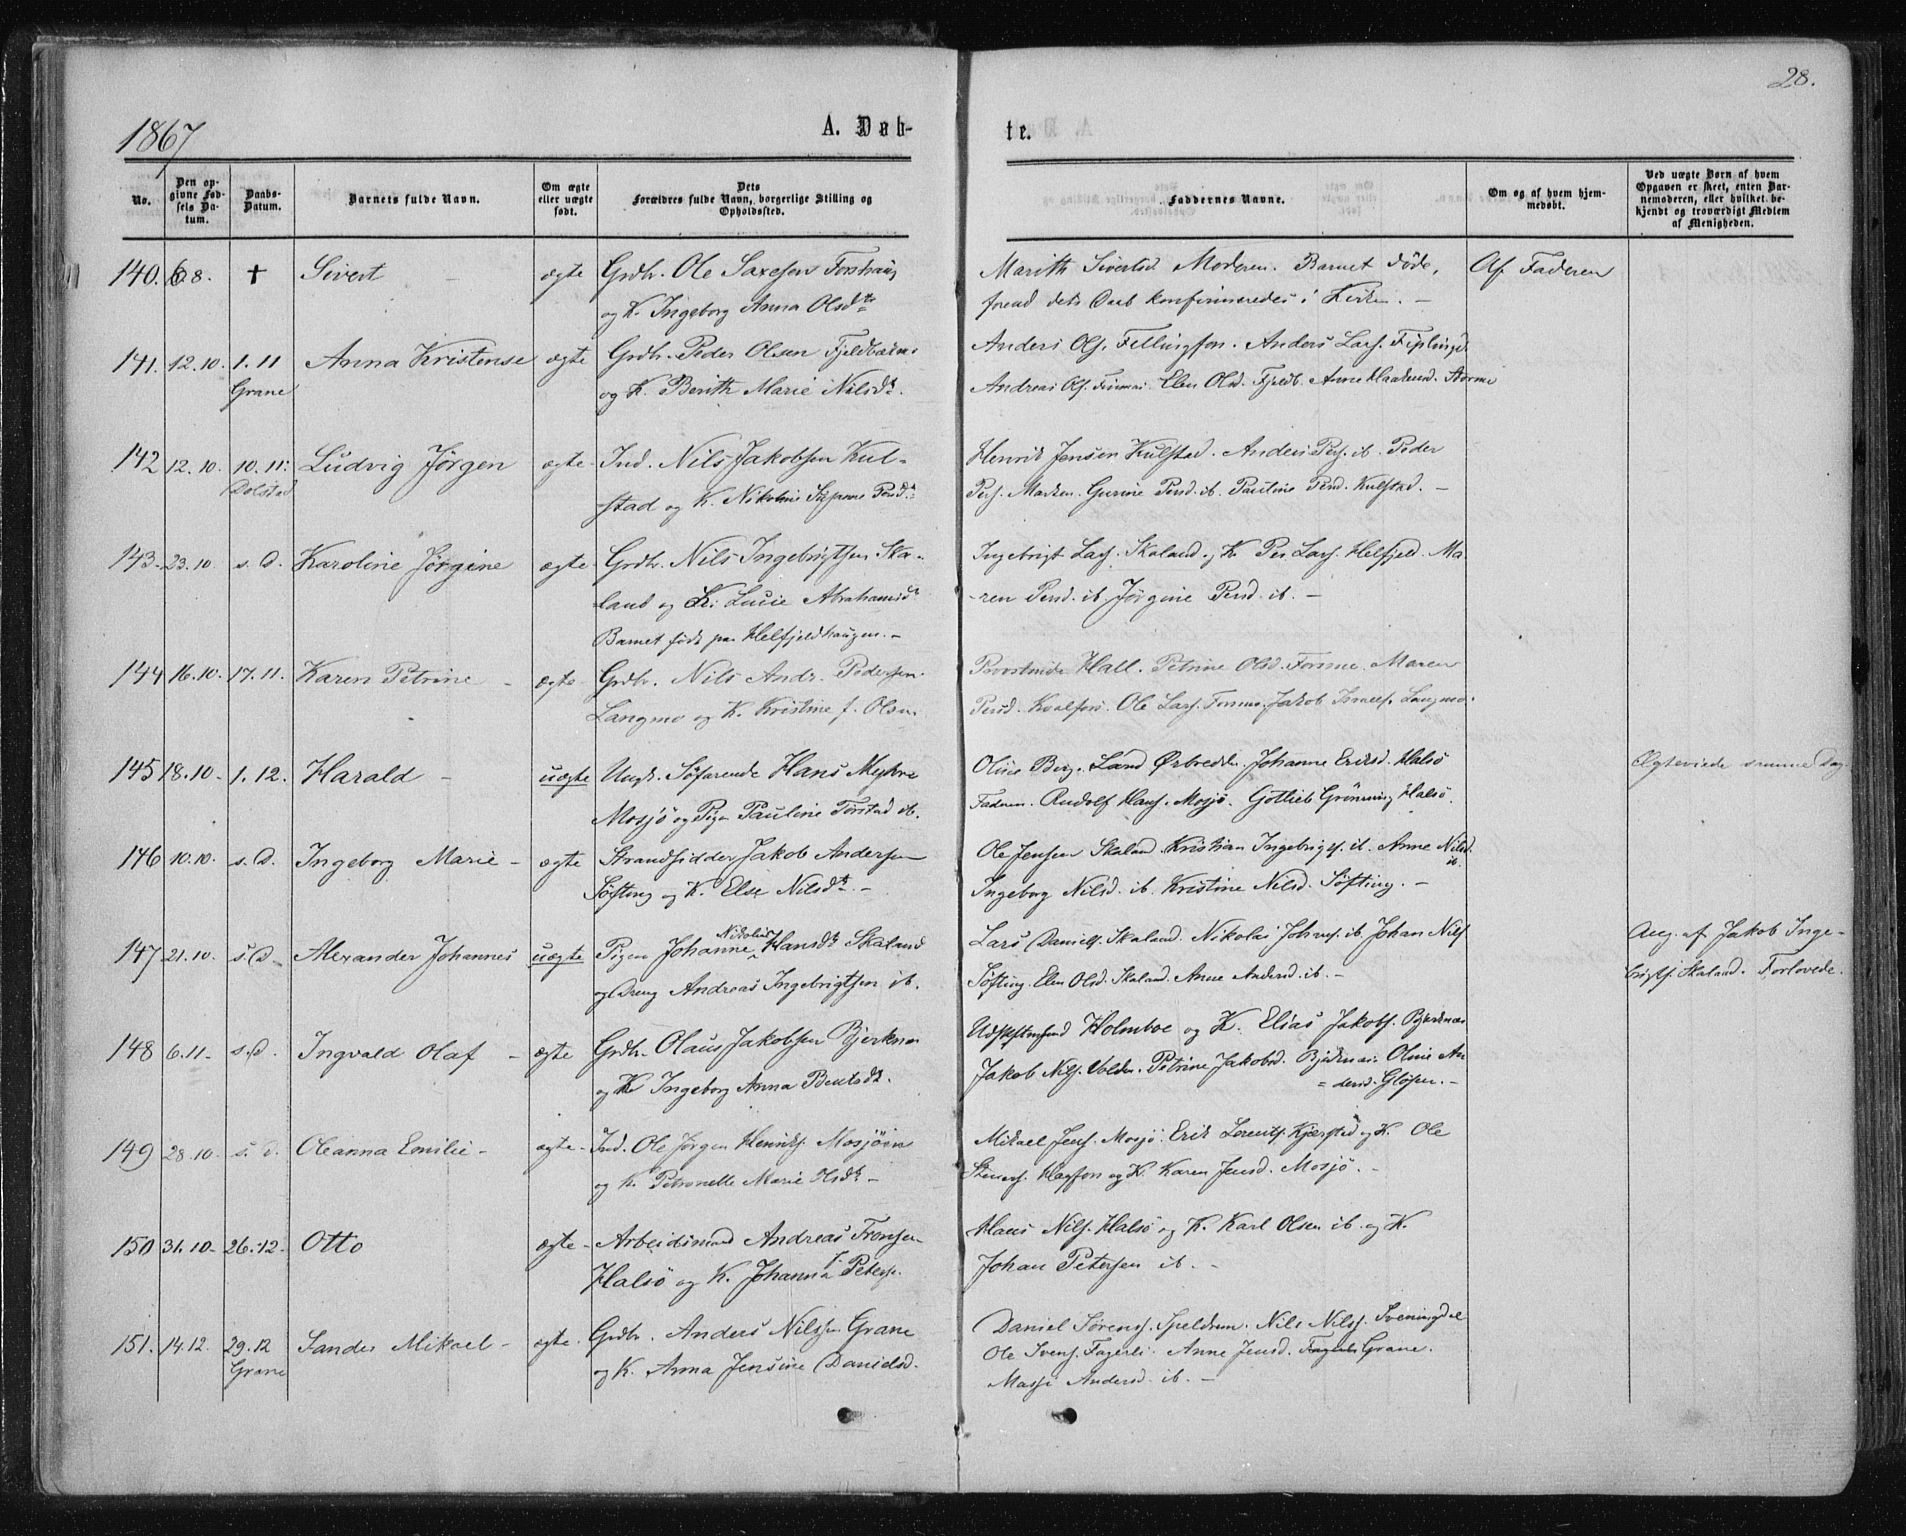 28.
1867
A. Døb-
te.
No.
Den op-
givne Fød-
sels Da-
tum.
Daabs-
Datum.
Barnets fulde Navn.
Om ægte
eller uægte
født.
Dets
Forældres fulde Navn, borgerlige Stilling og
Opholdssted.
Faddernes Navne.
Om og af hvem hjem-
medøbt.
Ved uægte Børn af hvem
Opgaven er skeet, enten Bar-
nemoderen, eller hvilket be-
kjendt og troværdigt Medlem
af Menigheden.
140. 8. † Sivert ægte Grdbr. Ole Saxesen Forshaug
og K. Ingeborg Anna Olsdtr
Marith Sivertsd Moderen. Barnet døde,
forend dets Daab konfirmeredes i Kirken. —
Af Faderen
141. 12.10. 1.11 Anna Kristense ægte Grdbr. Peder Olsen
Grane
og K. Berith Marie Nilsdt.
Anders Ols. Anders Lars.
Andreas Ols. Elen Olsd. Fjeldb. Anne Haakensd.
142 12.10. 10.11. Ludvig Jørgen ægte Ind. Nils Jakobsen Kul-
Dolstad
stad og K. Nikoline Persdt
Henrik Jensen Kulstad. Anders Pers. ib. Peder
Pers. Marken. Gurine Persd. ib. Pauline Persd. Kulstad. —
143. 23.10 s.D. Karoline Jørgine ægte Grdbr. Nils Ingebrigtsen Ska-
land og K. Lucie Abrahamsdt
Barnet født paa Helfjeldhaugen. —
Ingebrigt Lars. Skaland og K. Per Lars. Helfjeld. Ma
-ren Persd. ib. Jørgine Persd. ib. —
144 16.10. 17.11. Karen Petrine — ægte Grdbr. Nils Andr. Pedersen
Langmo og K. Kristine f. Olsen
Hall. Petrine Olsd. Forsmo. Maren
Persd. Kvalfors. Ole Lars. Forsmo. Jakob Langmo.
145 18.10 1.12. Harald — uægte Ungk. Søfarende Hans
Mosjø og Pigen Pauline Forstad ib.
Oline Berg. Johanne Eriksd. Halsø
Faderen. Rudolf Hans. Mosjø. Gotlieb Grønning Halsø.
Ægteviede samme Dag.
146 10.10. s.D. Ingeborg Marie — ægte Strandsidder Jakob Andersen
Søfting og K. Else Nilsdt. —
Ole Jensen Skaland. Kristian Ingebrigts. ib. Anne Nilsd.
ib.
Ingeborg Nilsd. ib. Kristine Nilsd. Søfting. —
147 21.10. s.D. Alexander Johannes uægte Pigen Johanne Hansdt Skaland
og Dreng Andreas Ingebrigtsen ib.
Lars Daniels. Skaland. Nikolai Johns. ib. Johan Nils
Søfting. Elen Olsd. Skaland. Anne Andersd. ib. —
Ang. af Jakob Inge-
brigts. Skaland. Forlovede.
148 6.11 — s.D. Ingvald Olaf — ægte Grdbr. Olaus Jakobsen Bjerknes
og K Ingeborg Anna Bentsdt.
Holmboe og K. Elias Jakobs. Bjerknes
Jakob Nils. Volden. Petrine Jakobsd. Bjerknes. Oline An
= dersd. —
149 28.10 s.D. Oleanna Emilie — ægte — Ind. Ole Jørgen Henriks. Mosjøen
og K. Petronelle Marie Olsdt —
Mikael Jens. Mosjø. Erik Lorents. Kjærstad og K. Ole
Steners. og K. Karen Jensd. Mosjø. —
150 31.10 — 26.12. Otto ægte — Arbeidsmand Andreas Tronsen
Halsø og K. Johanna f. Peters.
Hans Nils. Halsø og K. Karl Olsen ib. og K.
Johan Petersen ib. —
151. 14.12. 29.12 Sander Mikael — ægte. Grdbr. Anders Nilssen Grane
Grane
og K. Anna Jensine Danielsd.
Daniel Sørens. Speldrem. Nils Nils. Sveningdal
Ole Svens. Fagerli. Anne Jensd. Grane.
Andersd. ib. —